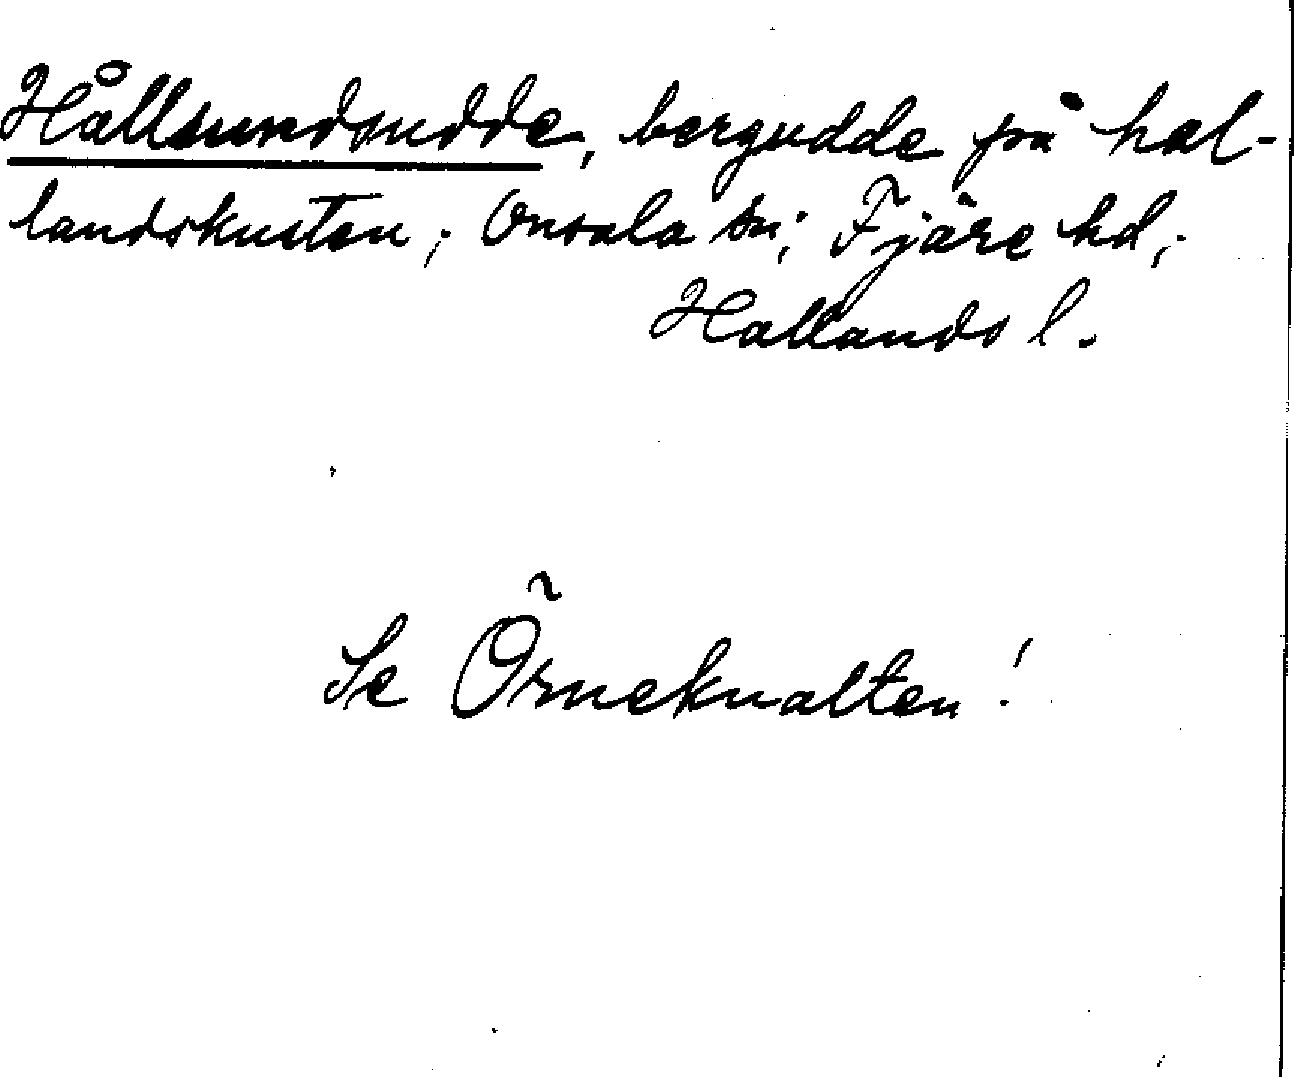 Hållsundsudde, bergudde på hal-
landskusten; Onsala sn; Fjäre hd;
Hallands l.
Se Örneknalten!